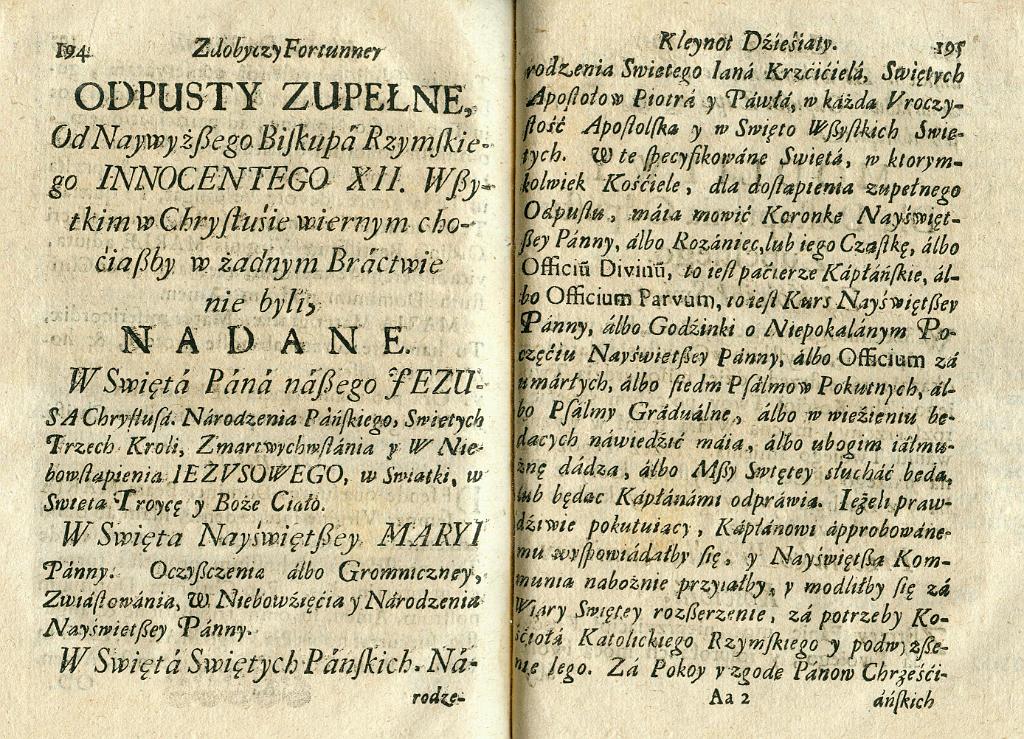 194 Zdobyczy Fortunney
ODPUSTY ZUPEŁNE,
Od Naywyżßego Biſkupá Rzymſkie-
go INNOCENTEGO XII. Wßy-
tkim w Chryſtuśie wiernym cho-
ćiaßby w żadnym Bráctwie
nie byli,
NADANE.
W Swiętá Páná náßego JEZU-
SA Chryſtuſá. Národzenia Páńſkiego, Swietych
Trzech Kroli, Zmartwychwſtánia y W Nie-
bowſtąpienia IEZVSOWEGO, w Swiatki, w
Swieta Troycę y Boże Ciało.
W Swięta Nayświętßey MARYI
Pánny: Oczyßczenia álbo Gromniczney,
Zwiáſtowánia, W Niebowźięćia y Národzenia
Nayświetßey Pánny.
W Swiętá Swiętych Páńſkich. Ná-
rodze-
Kleynot Dźieśiaty. 195
rodzenia Swietego Ianá Krzćićielá, Swiętych
Apoſtołow Piotrá y Páwłá, w káżda Vroczy-
ſtość Apoſtolſka y w Swięto Wßyſtkich Swie-
tych. W te ſpecyfikowáne Swiętá, w ktorym-
kolwiek Kośćiele, dla doſtąpienia zupełnego
Odpuſtu, máia mowić Koronke Nayświęt-
ßey Pánny, álbo Rozániec, lub iego Cząſtkę, álbo
Officiū Divinū, to ieſt paćierze Kápłáńſkie, ál-
bo Officium Parvum, to ieſt Kurs Nayświętßey
Pánny, álbo Godźinki o Niepokalánym Po-
częćiu Nayświetßey Pánny, álbo Officium zá
umárłych, álbo śiedm Pſálmow Pokutnych, ál-
bo Pſálmy Gráduálne, álbo w wieźieniu be-
dacych náwiedźić máia, álbo ubogim iáłmu-
żnę dádza, álbo Mßy Swiętey słucháć beda,
lub będac Kápłánámi odpráwia. Ieżeli praw-
dźiwie pokutuiacy, Kápłánowi approbowáne-
mu wyſpowiádałby ſię, y Nayświętßa Kom-
munia nabożnie przyiałby, y modliłby ſię zá
Wiary Swiętey rozßerzenie, zá potrzeby Ko-
śćiołá Katolickiego Rzymſkiego y podwyżße-
nie Iego. Zá Pokoy y zgode Pánow Chrześći-
Aa 2 áńſkich